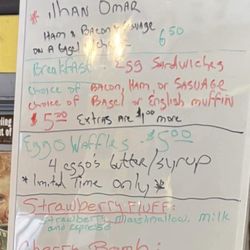 * Jhan Omar
Ham & Bacon Sausage
on A Bagel 6.50
Breakfast - Egg Sandwiches
choice of Bacon, Ham, or Sasuage
choice of Bagel or English muffin
$5.50 Extras are $1.00 more
Eggo Waffles $5.00
4 eggo's butter/syrup
*limited Time Only*
Strawberry Fluff:
Strawberry, Marshmallow, milk
and espresso
Cherry Bomb: